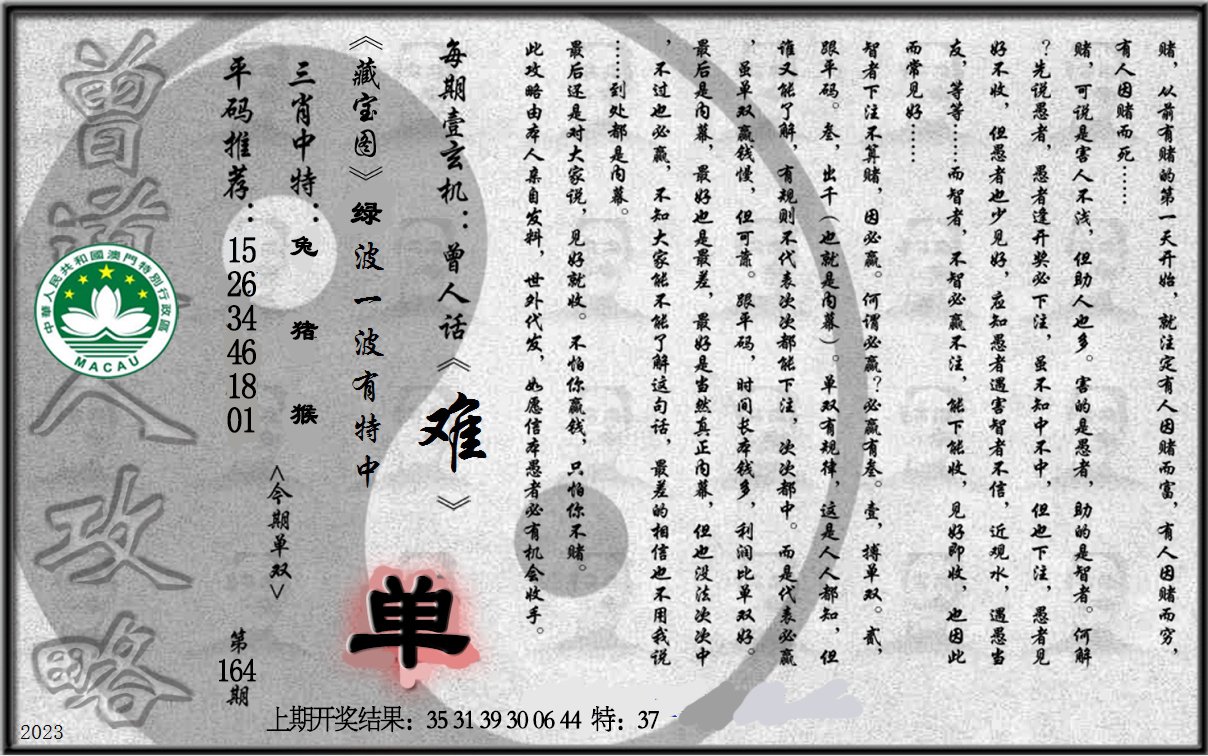 赌，从前有赌的第一天开始，就注定有人因赌而富，有人因赌而穷，
有人因赌而死……
赌，可说是害人不浅，但助人也多。害的是愚者，助的是智者。何解
？先说愚者，愚者逢开奖必下注，虽不知中不中，但也下注，愚者见
好不收，但愚者也少见好，应知愚者遇害智者不信，近观水，遇愚当
友，等等……而智者，不智必赢不注，能下能收，见好即收，也因此
而常见好……
智者下注不算赌，因必赢。何谓必赢？必赢有叁。壹，搏单双。贰，
跟平码。叁，出千（也就是内幕）。单双有规律，这是人人都知，但
谁又能了解，有规则不代表次次都能下注，次次都中。而是代表必赢
，虽单双赢钱慢，但可靠。跟平码，时间长本钱多，利润比单双好。
最后是内幕，最好也是最差，最好是当然真正内幕，但也没法次次中
，不过也必赢，不知大家能不能了解这句话，最差的相信也不用我说
……到处都是内幕。
最后还是对大家说，见好就收。不怕你赢钱，只怕你不赌。
此攻略由本人亲自发料，世外代发，如愿信本愚者必有机会收手。
每期壹玄机：曾人话《难》
《藏宝图》绿波一波有特中
单
三肖中特：兔 猪 猴
<今期单双>
平码推荐：15 26 34 46 18 01
第164期
曾道人攻略
中華人民共和國澳門特別行政區
MACAU
上期开奖结果：35 31 39 30 06 44 特：37
2023